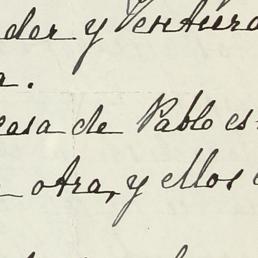 der y Ventura
a.
casa de Pablo es
otra, y ellos